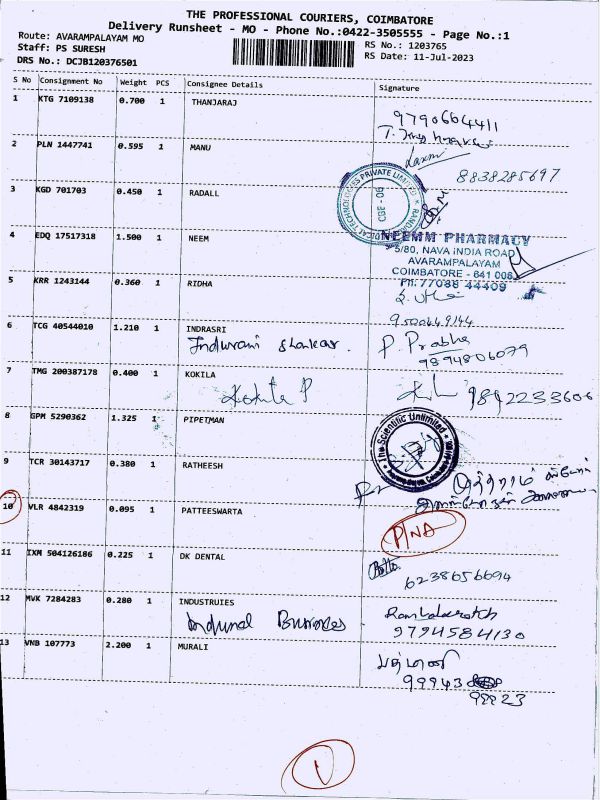 THE PROFESSIONAL COURIERS, COIMBATORE
Delivery Runsheet - MO - Phone No.:0422-3505555 - Page No.:1
Route: AVARAMPALAYAM MO
Staff: PS SURESH
RS No.: 1203765
DRS No.: DCJB120376501
RS Date: 11-Jul-2023
S No Consignment No Weight PCS Consignee Details Signature
1 KTG 7109138 0.700 1 THANJARAJ
9790604411
2 PLN 1447741 0.595 1 MANU
Laxmi
8838285697
3 KGD 701703 0.450 1 RADALL
TECHNOLOGIES PRIVATE LIMITED
CBE - 06
4 EDQ 17517318 1.500 1 NEEM
NEEMM PHARMACY
5/80, NAVA INDIA ROAD
AVARAMPALAYAM
COIMBATORE - 641 006
PH:77088 44409
5 KRR 1243144 0.360 1 RIDHA
9500649144
6 TCG 40544010 1.210 1 INDRASRI
Indurani Shankar.
P. Prabha
9894806079
7 TMG 200387178 0.400 1 KOKILA
Kokila P
9842233606
8 GPM 5290362 1.325 1 PIPETMAN
The Scientific Unlimited
9 TCR 30143717 0.380 1 RATHEESH
10 VLR 4842319 0.095 1 PATTEESWARTA
P/NA
11 IXM 504126186 0.225 1 DK DENTAL
6238656694
12 MVK 7284283 0.280 1 INDUSTRUIES
Business
9794584130
13 VNB 107773 2.200 1 MURALI
99943
99923